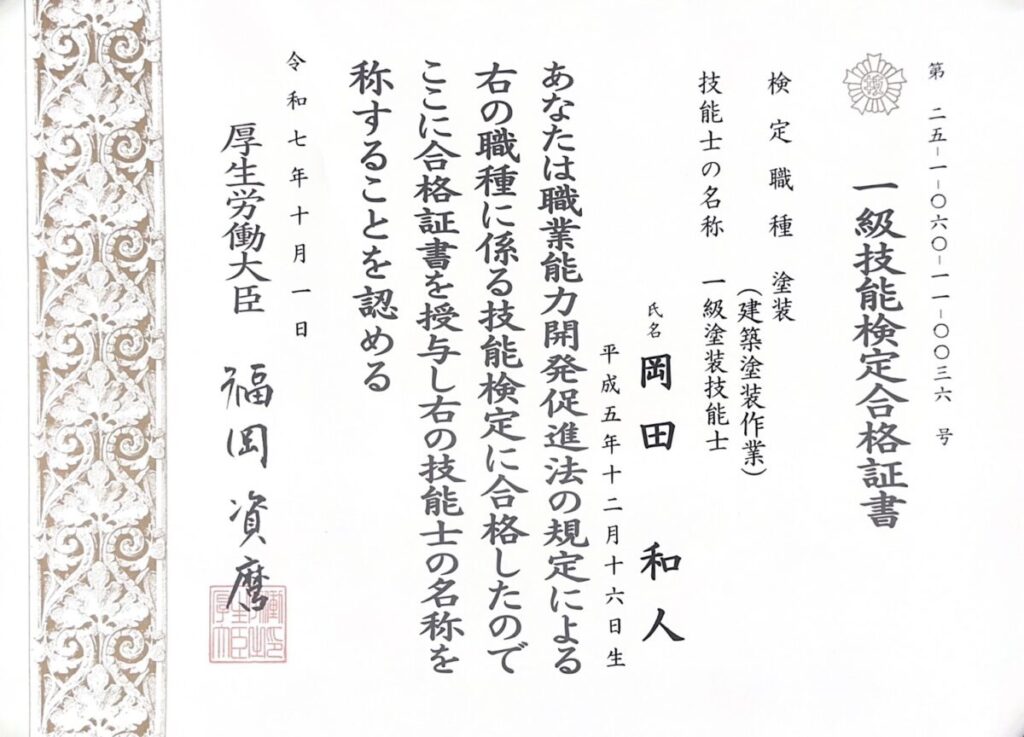 第 二五-一-〇六〇-一一-〇〇三六 号
一級技能検定合格証書
検定職種 塗装
(建築塗装作業)
技能士の名称 一級塗装技能士
氏名 岡田 和人
平成五年十二月十六日生
あなたは職業能力開発促進法の規定による
右の職種に係る技能検定に合格したので
ここに合格証書を授与し右の技能士の名称を
称することを認める
令和七年十月一日
厚生労働大臣 福岡 資麿